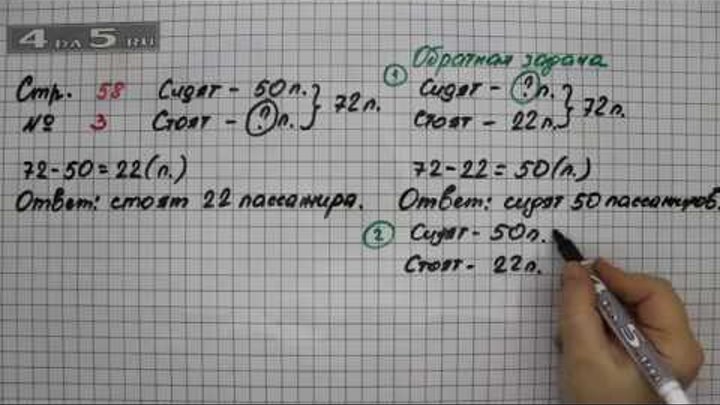 4 на 5.RU
Стр. 58
№ 3
Сидят - 50 п.
Стоят - ? п.
} 72 п.
72 - 50 = 22 (п.)
Ответ: стоят 22 пассажира.
Обратная задача
1
Сидят - ? п.
Стоят - 22 п.
} 72 п.
72 - 22 = 50 (п.)
Ответ: сидят 50 пассажиров.
2
Сидят - 50 п.
Стоят - 22 п.